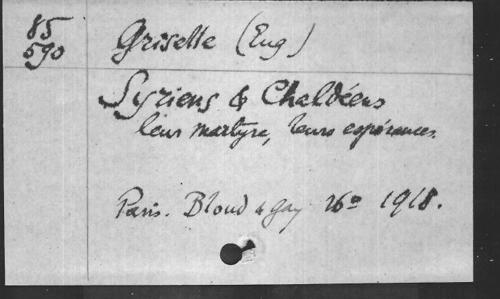 85
590
Griselle (Eug)
Syriens & Chaldéens
leur martyre, leurs espérances.
Paris. Bloud & Gay 16º 1918.